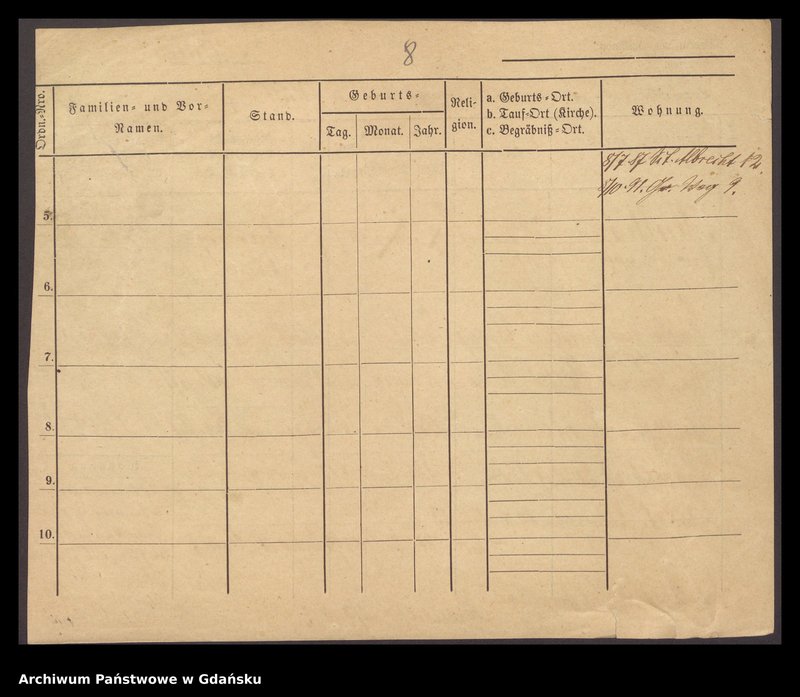 8
Ordn.-Nro.
Familien- und Vor-
Namen.
Stand.
Geburts-
Tag.
Monat.
Jahr.
Reli-
gion.
a. Geburts-Ort.
b. Tauf-Ort (Kirche).
c. Begräbniß-Ort.
Wohnung.
8/7. 87 St. Albrecht 12.
5/10. 91. Gr. Weg 9.
5.
6.
7.
8.
9.
10.
Archiwum Państwowe w Gdańsku